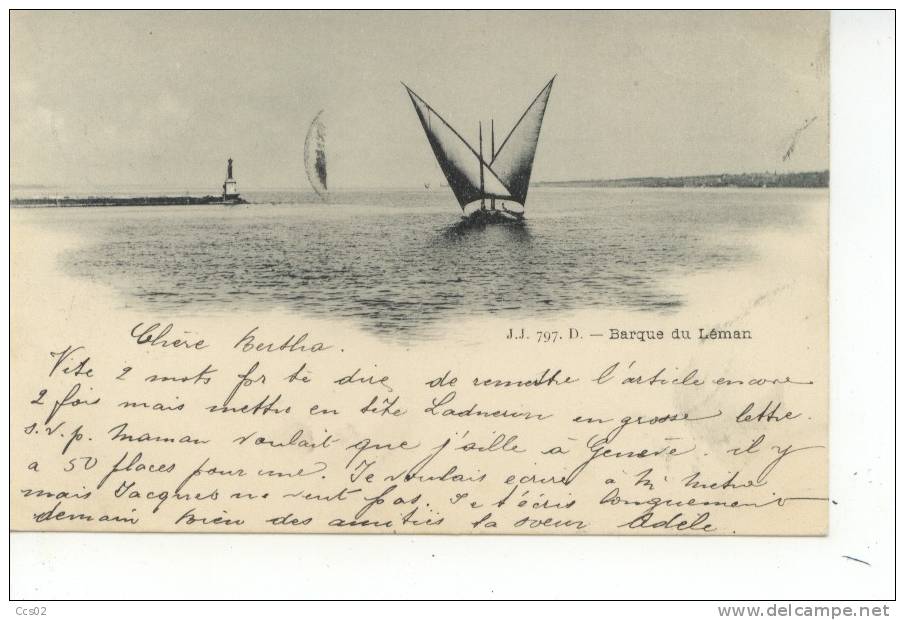 J.J. 797. D. — Barque du Léman
Chère Bertha.
Vite 2 mots te dire de remettre l'article encore
2 fois mais mettre en tête en grosse lettre.
s.v.p. Maman voulait que j'aille à Genève. il y
a 50 places pour une. Je voulais écrire à
mais Jacques ne veut pas. Je t'écris longuement
demain bien des amitiés ta soeur Adèle.
Ccs02
http://www.delcampe.net